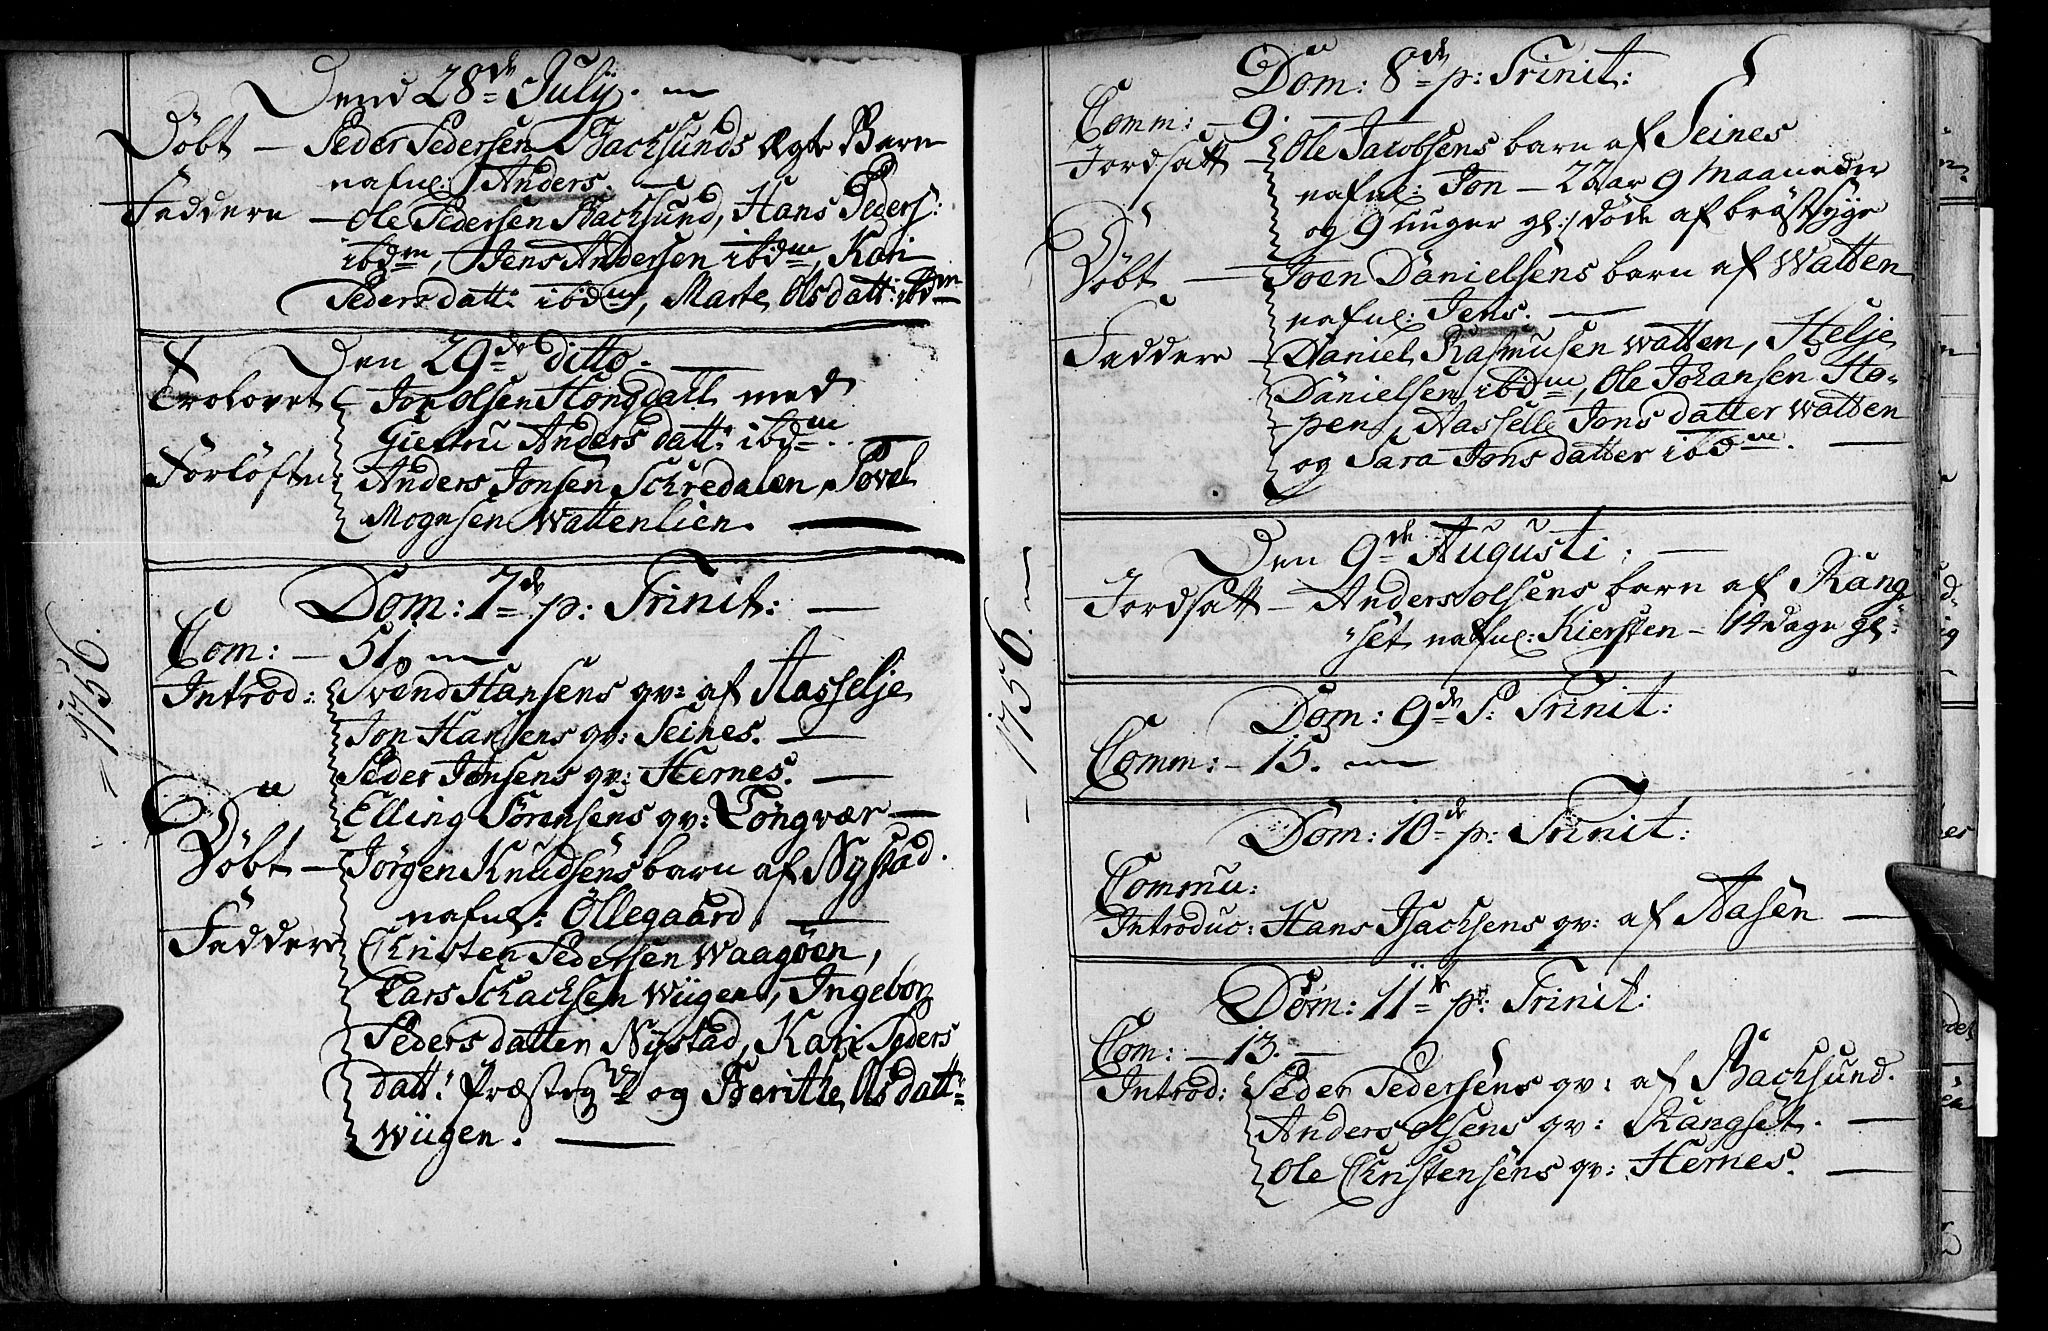 1756.
Dend 28de July.
Döbt - Peder Pedersen Backsunds ægte Barn
nafnl: Anders.
Faddere - Ole Pedersen Backsund, Hans Peders:
ibdm, Jens Andersen ibdm, Kari
Pedersdatt: ibdm, Marte Olsdatt: ibdm
Den 29de ditto.
Trolovet Jon Olsen Hongdall med
Giertru Anders datt: ibdm.
Forlöftn: Anders Jonsen Schredalen, Povel
Mogensen Wattenlien.
Dom: 7de p: Trinit:
Com: - 51.
Introd: Svend Hansens qv: af Hasselje
Jon Hansens qv: Seines.
Peder Jonsens qv: Hernes.
Elling Sörensens qv: Töngvær
Döbt - Jörgen Knudsens barn af Nystad.
nafnl: Öllegaard.
Faddere Christen Pedersen Waagöen,
Lars Schachsen Wügen, Ingebor
Pedersdatter Nystad, Kari Peders
datt: Præstegd og Berithe Olsdatt:
Wügen.
1756.
Dom: 8de p: Trinit:
Comm: - 9.
Jordsatt - Ole Jacobsens barn af Seines
nafnl: Jon - 2 aar 9 Maaneder
og 9 uuger gl: döde af bröstsyge
Döbt - Joen Danielsens barn af Watten
nafnl: Jens.
Faddere - Daniel Rasmusen Watten, Helje
Danielsen ibdm, Ole Johansen Ho-
pen, Hasselle Jons datter Watten
og Sara Jons datter ibdm.
Den 9de Augusti:
Jordsatt - Anders Olsens barn af Rang
set nafnl: Kiersten - 14 dage gl:
Dom: 9de P: Trinit:
Comm: - 15.
Dom: 10de p: Trinit:
Commu:
Introduc: Hans Isachsens qv: af Aasen
Dom: 11te p: Trinit:
Com: - 13.
Introd: Peder Pedersens qv: af Backsund.
Anders Olsens qv: Rangset.
Ole Christensens qv: Hernes.